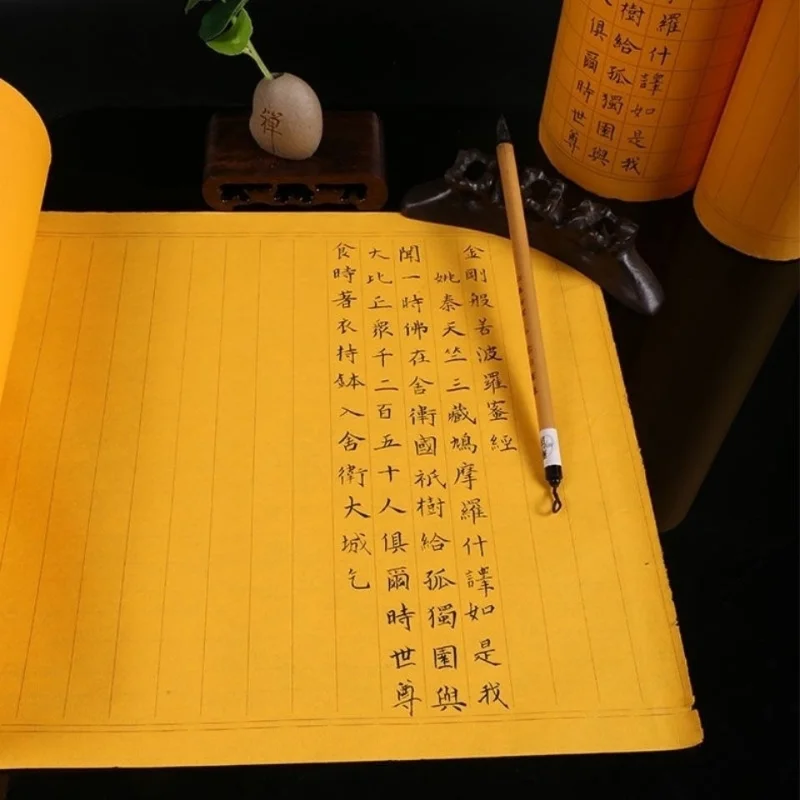 金剛般若波羅蜜經
姚秦天竺三藏鳩摩羅什譯如是我
聞一時佛在舍衛國祇樹給孤獨園與
大比丘眾千二百五十人俱爾時世尊
食時著衣持鉢入舍衛大城乞
禪
羅什譯如是我
樹給孤獨園與
俱爾時世尊